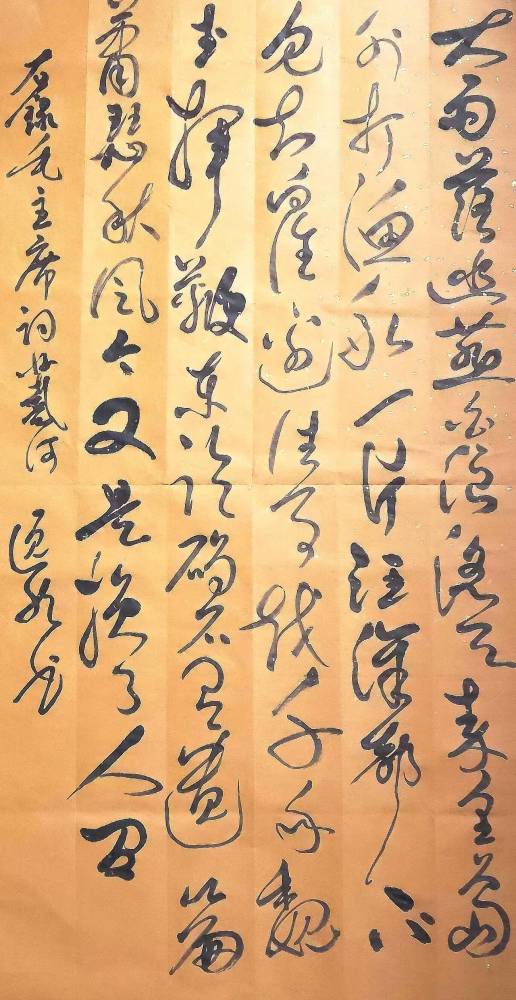 大雨落幽燕白浪滔天秦皇岛
外打渔船一片汪洋都不
见知向谁边往事越千年魏
武挥鞭东临碣石有遗篇
萧瑟秋风今又是换了人间
右録毛主席词北戴河 书